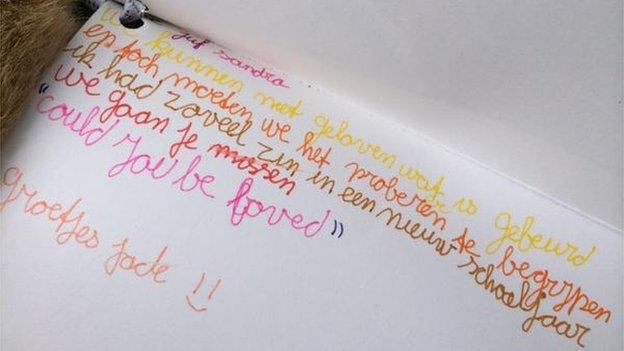 juf sandra
we kunnen niet geloven wat er is gebeurd
en toch moeten we het proberen te begrijpen
ik had zoveel zin in een nieuw schooljaar
we gaan je missen
"could you be loved"
groetjes jade !!